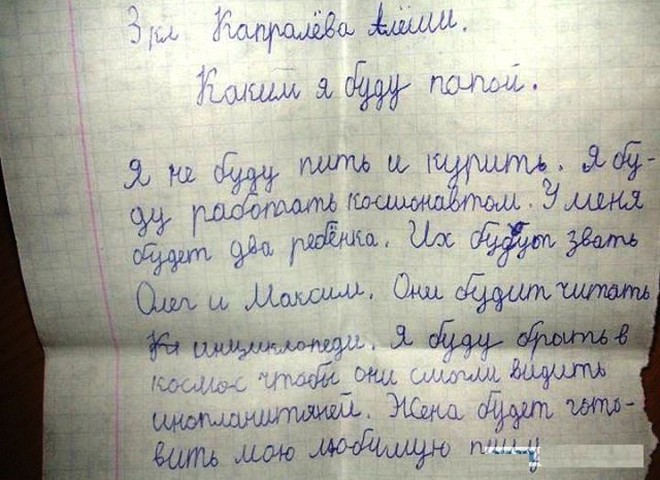 3 кл Капралёва Алёши.
Каким я буду папой.
Я не буду пить и курить. Я бу-
ду работать космонавтом. У меня
будет два ребёнка. Их будут звать
Олег и Максим. Они будит читать
инциклопеди. Я буду брать в
космос чтобы они смогли видить
инопланитяней. Жена будет гото-
вить мою любимую пицу